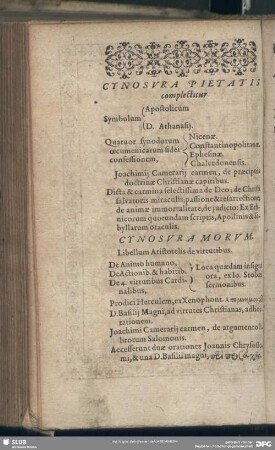 CYNOSVRA PIETATIS
complectitur
Symbolum
Apostolicum
D. Athanasij.
Quatuor synodorum
œcumenicarum fidei
confessionem,
Nicenæ.
Constantinopolitanæ.
Ephesinæ.
Chalcedonensis.
Joachimij Camerarij carmen, de præcipuis
doctrinæ Christianæ capitibus.
Dicta & carmina selectissima de Deo, de Christi
salvatoris miraculis, passione & resurrectione,
de animæ immortalitate, de judicio: Ex Eth-
nicorum quorundam scriptis, Apollinis &
byllarum oraculis.
CYNOSVRA MORVM.
Libellum Aristotelis de virtutibus.
De Animo humano,
De Actionib. & habitib.
De 4. virtutibus Cardi-
nalibus,
Loca quædam insigni-
ora, ex Io. Stobæi
sermonibus.
Prodici Herculem, ex Xenophont.
D. Basilij Magni, ad virtutes Christianas, adhor-
tationem.
Joachimi Camerarij carmen, de argumentis
brorum Salomonis.
Accesserunt duæ orationes Joannis Chrysosto-
mi, & una D. Basilii magni,
SLUB
DFG